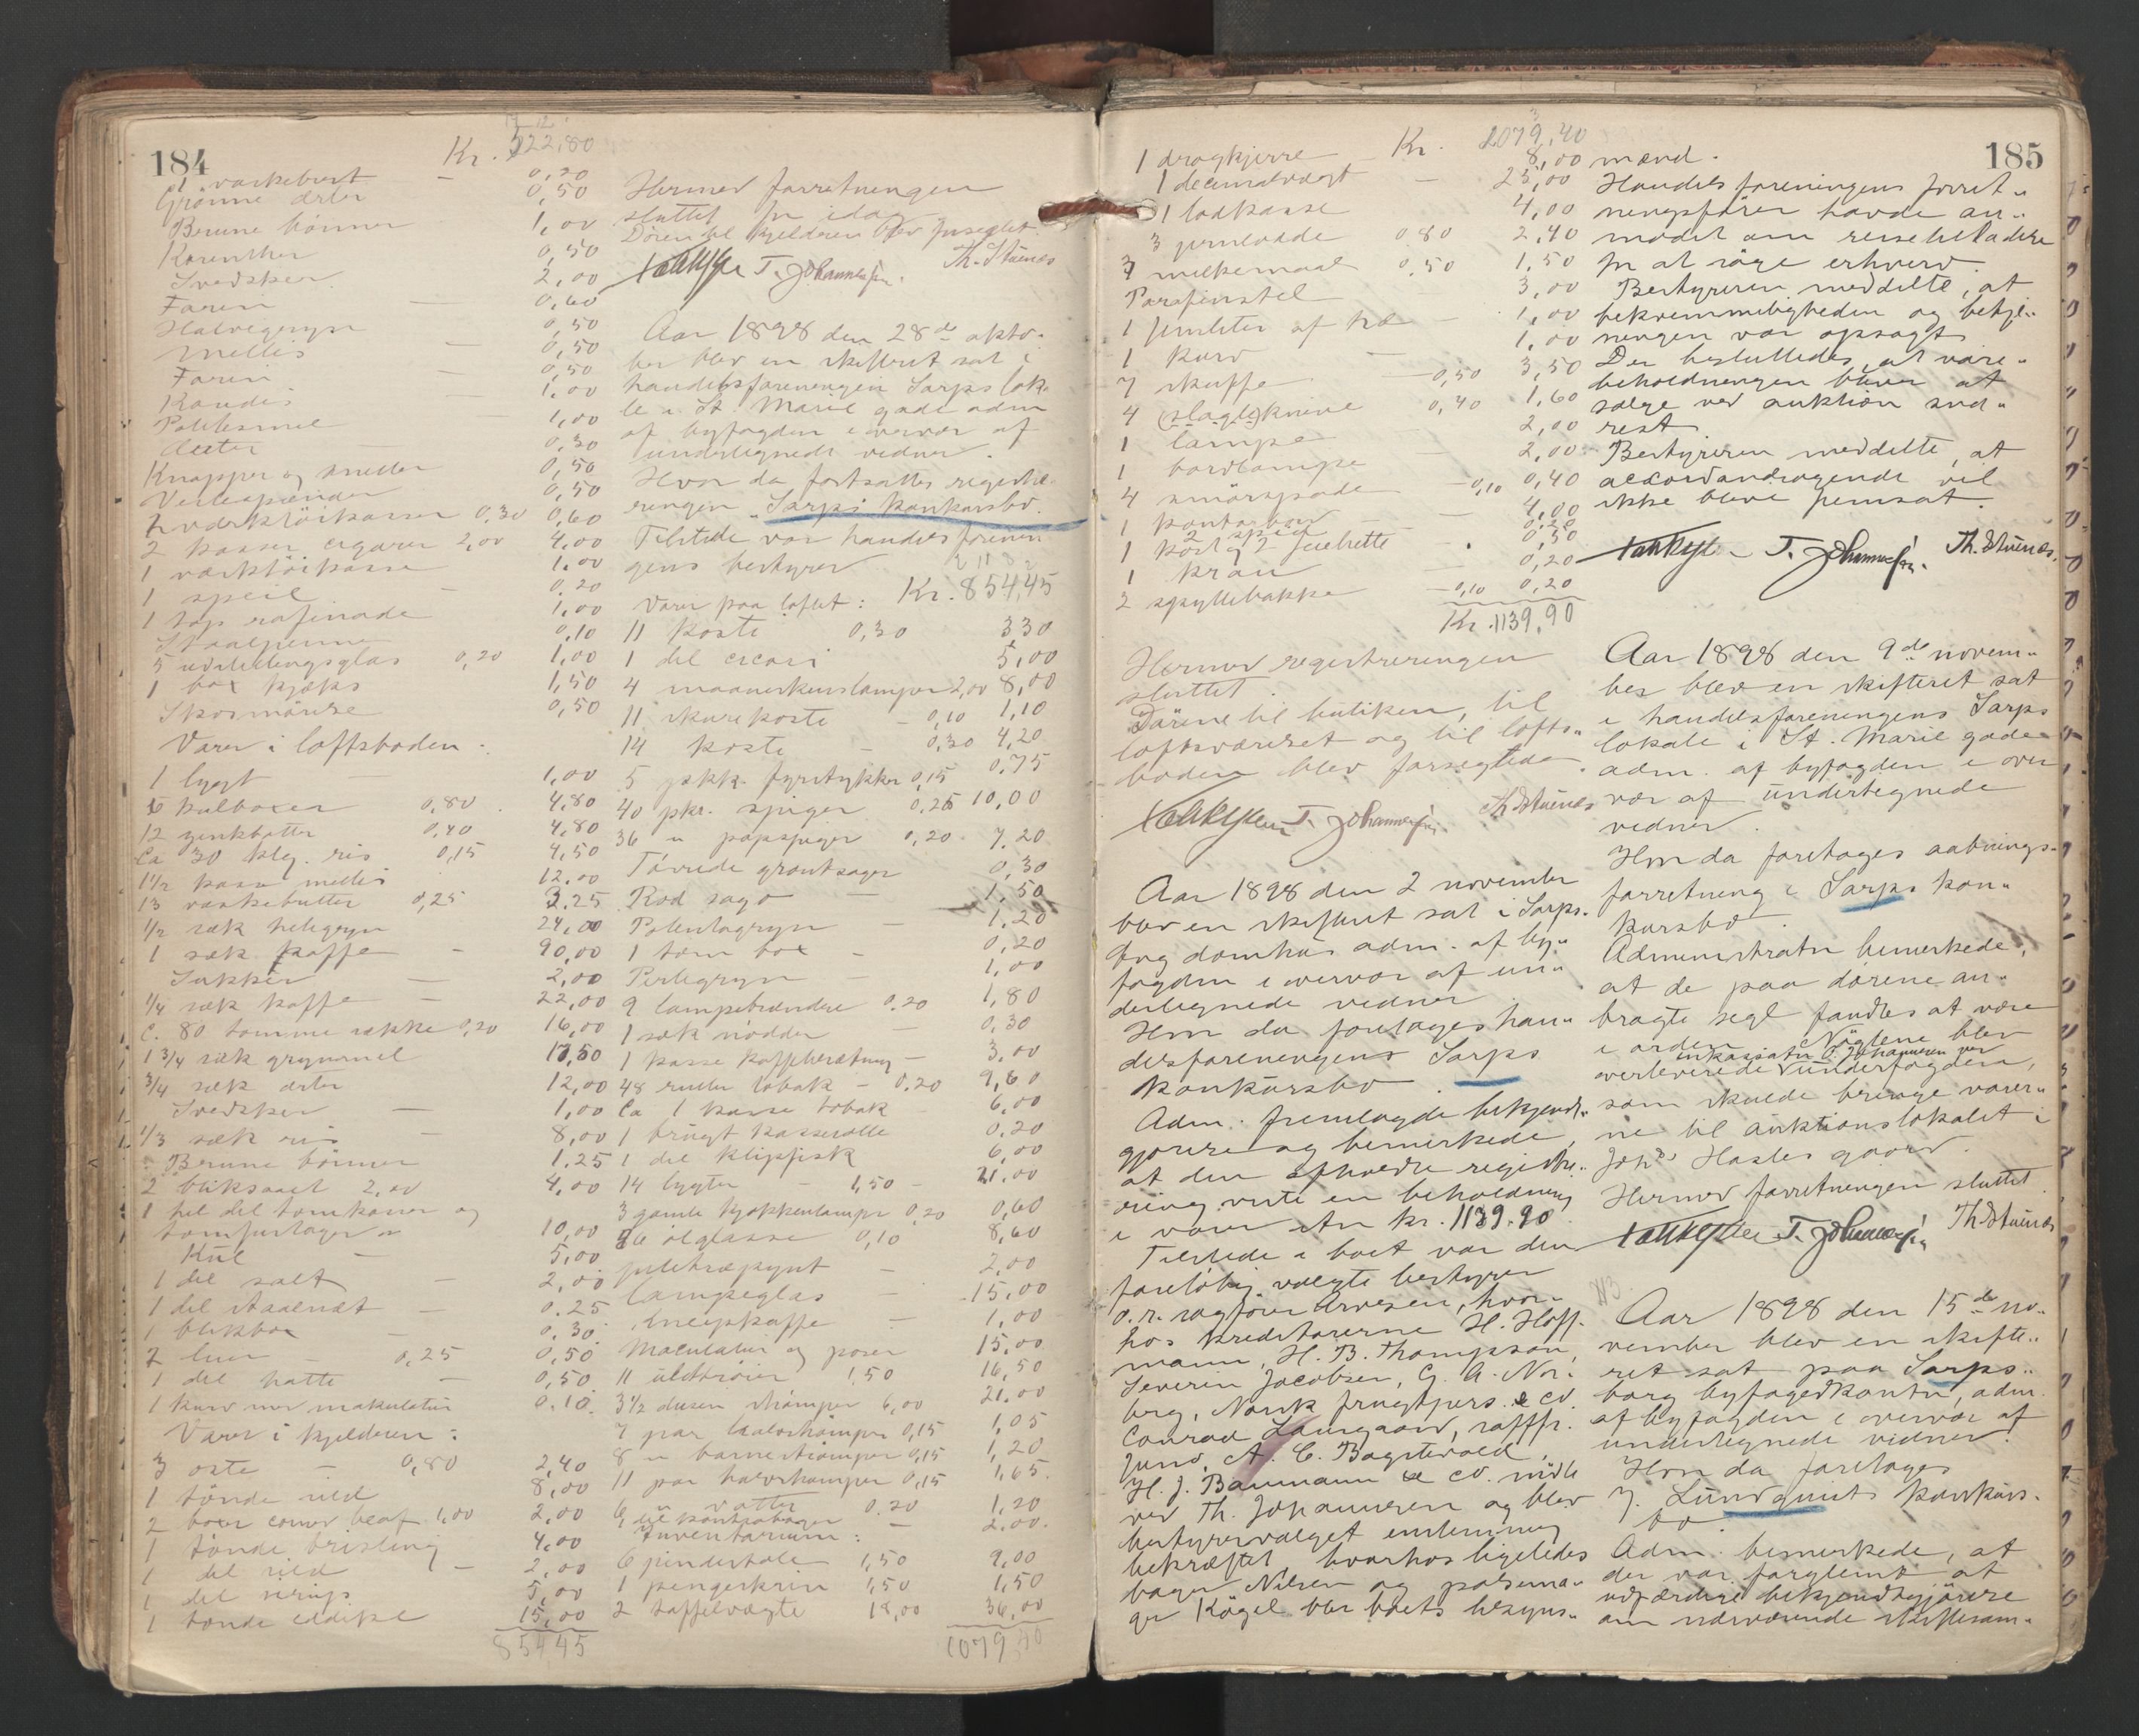 184
Kr. 522,80
1 vaskebret — 0,20
Grønne erter 0,50
Brune bönner 1,00
Korenther 0,50
Svedsker 2,00
Farin — 0,60
Havregryn 0,50
Mellis — 0,50
Farin 0,50
Kandis — 1,00
Potetesmel 1,00
Knapper og sneller 0,50
0,50
2 værktöikasser 0,30 0,60
2 kasser cigarer 2,00 4,00
1 værktöikasse 1,00
1 speil — 0,20
1 top rafinade 1,00
Staalpenne 0,10
5 udstillingsglas 0,20 1,00
1 box kjæks 1,50
Skosmörelse 0,50
Varer i loftsboden:
1 lygt — 1,00
6 kulboxer 0,80 4,80
12 zinkbøtter 0,40 4,80
Ca 30 klg. ris 0,15 4,50
1 1/2 kasse mellis 12.00
13 vaskebutter 0,25 3.25
1/2 sæk helegryn 24,00
1 sæk kaffe — 90,00
Sukker — 2,00
1/4 sæk kaffe — 22,00
C. 80 tomme sække 0,20 16,00
1 3/4 sæk grynmel 17,50
3/4 sæk erter 12,00
Svedsker — 1,00
1/3 sæk ris — 8,00
" Brune bönner 1.25
2 blikspael 2,00 4,00
1 hel del tomkasser og
tomfustager 10,00
Kul — 5,00
1 del salt — 2,00
1 del staalnæt — 0.25
1 blikbox — 0,30
2 luer — 0,25 0,50
1 del hatte — 0,50
1 kurv med makulatur 0.10
Varer i kjelderen:
3 oste — 0,80 2,40
1 tönde sild 8,00
2 boxer corned beaf 1,00 2,00
1 tönde brisling 4,00
1 del sild — 2,00
1 del sirup 5,00
1 tönde eddike 15,00
85445
Hermed forretningen
sluttet for idag.
Dören til kjelderen blev forseglet.
T. Johannessen. Th. Stuenes
Aar 1898 den 28de okto-
ber blev en skifteret sat i
handelsforeningen Sarps loka-
le i St. Marie gade adm
af byfogden i overvær af
undertegnede vidner.
Hvor da fortsattes registre-
ringen i Sarps konkursbo.
Tilstede var handelsforenin
gens bestyrer
Varer paa loftet: Kr. 854,45
11 koste 0,30 3 30
1 del cicori 5,00
4 maaneskinslamper 2,00 8,00
11 skurekoste — 0,10 1,10
14 koste — 0,30 4,20
5 pakk. fyrstykker 0,15 0.75
40 pkr. spiger 0.25 10,00
36 " papspiger 0,20 7.20
Törrede grøntsager 0,30
Rod sago — 1,50
Polentagryn — 1.20
1 tom box — 0,20
Perlegryn — 1,00
9 lampebrændere 0.20 1,80
1 sæk nödder 0.30
1 kasse kaffeerstatning — 3,00
48 ruller tobak — 0.20 9,60
Ca 1 kasse tobak 6,00
1 brugt kasserolle 0.20
1 del klipfisk 6,00
14 lygter — 1,50 — 21.00
3 gamle kjøkkenlamper 0,20 0,60
86 ölglasse 0,10 8,60
juletræpynt — 2,00
lampeglas — 15,00
kneipkaffe — 1,00
Maculatur og poser 15,00
11 uldtröier 1,50 16,50
3 1/2 dusin strömper 6,00 21.00
7 par ladeströmper 0,15 1,05
8 " barneströmper 0,15 1,20
11 par halvströmper 0,15 1,65
6 " votter 0.20 1,20
1 del kontrabøger — 2.00
Inventarium:
6 pindestole 1,50 9,00
1 pengeskrin 1,50 1,50
2 taffelvægte 18,00 36,00
1079 90
185
Kr. 1079,40
1 dragkjerre 8,00
1 decimalvægt — 25,00
1 lodkasse 4,00
3 jernlodde 0.80 2,40
3 melkemaal 0,50 1,50
Parafinstel 3,00
1 femliter af træ — 1,00
1 kurv — 1,00
7 skuffe — 0,50 3,50
4 (slagte)knive 0,40 1,60
1 lampe 2,00
1 bordlampe — 2,00
4 smörspade — 0,10 0,40
1 kontorbord — 4,00
1 kost og 2 feiebrette 0,50
1 kran — 0,20
2 spyttebakke — 0,10 0,20
Kr. 1139,90
Hermed registreringen
sluttet.
Dörene til butiken, til
loftsværelset og til lofts-
boden blev forseglede.
T. Johannessen. Th Stuenes
Aar 1898 den 2 november
blev en skifteret sat i Sarps-
borg domhus adm. af by-
fogden i overvær af un-
dertegnede vidner
Hvor da foretages han-
delsforeningens Sarps
konkursbo.
Adm. fremlagde bekjendt-
gjørelse og bemerkede,
at den afholdte registre-
ring viste en beholdning
i varer stor kr. 1139.90
Tilstede i boet var den
foreløbig valgte bestyrer
o.r. sagförer Arvesen, hvor-
hos kreditorerne H. Hoff-
mann, H. B. Thompson,
Severin Jacobsen, G. A. Nor-
berg, Norsk frugtpres. & co.
Conrad Langaard, safffr.
Juno, A. C. Bagstevold,
H. J. Baumann & co. mødte
ved Th. Johannesen og blev
bestyrervalget enstemmig
bekræftet, hvorhos ligeledes
bager Nilsen og pølsema-
ger Kögel blev boets tilsyns-
mænd.
Handelsforeningens forret-
ningsfører havde an-
modet om reisetilladelse
for at söge erhverv.
Bestyreren meddelte, at
bekvemmeligheden og betje-
ningen var opsagt
Det besluttedes, at vare-
beholdningen bliver at
sælge ved auktion snar-
rest
Bestyreren meddelte, at
accordandragende vil
ikke blive fremsat.
T. Johannessen. Th. Stuenes.
Aar 1898 den 9de novem-
ber blev en skifteret sat
i handelsforeningens Sarps
lokale i St. Marie gade
adm. af byfogden i over
vær af undertegnede
vidner.
Hvor da foretages aabnings-
forretning i Sarps kon-
kursbo.
Administrator bemerkede,
at de paa dörene an-
bragte segl fandtes at være
i orden. Nöglene blev
inkassator T. Johannesen ved
overleverede underfogden,
som skulde besørge varer-
ne til auktionslokalet i
Johs Hasles gaard.
Hermed forretningen sluttet
T. Johannessen Th Stuenes
Aar 1898 den 15de no-
vember blev en skifte-
ret sat paa Sarps-
borg byfogedkontor, adm.
af byfogden i overvær af
undertegnede vidner.
Hvor da foretages
J. Lundquists konkurs-
bo.
Adm. bemerkede, at
der var forglemt at
udfærdige bekjendtgjörelse
om nærværende skiftesam-